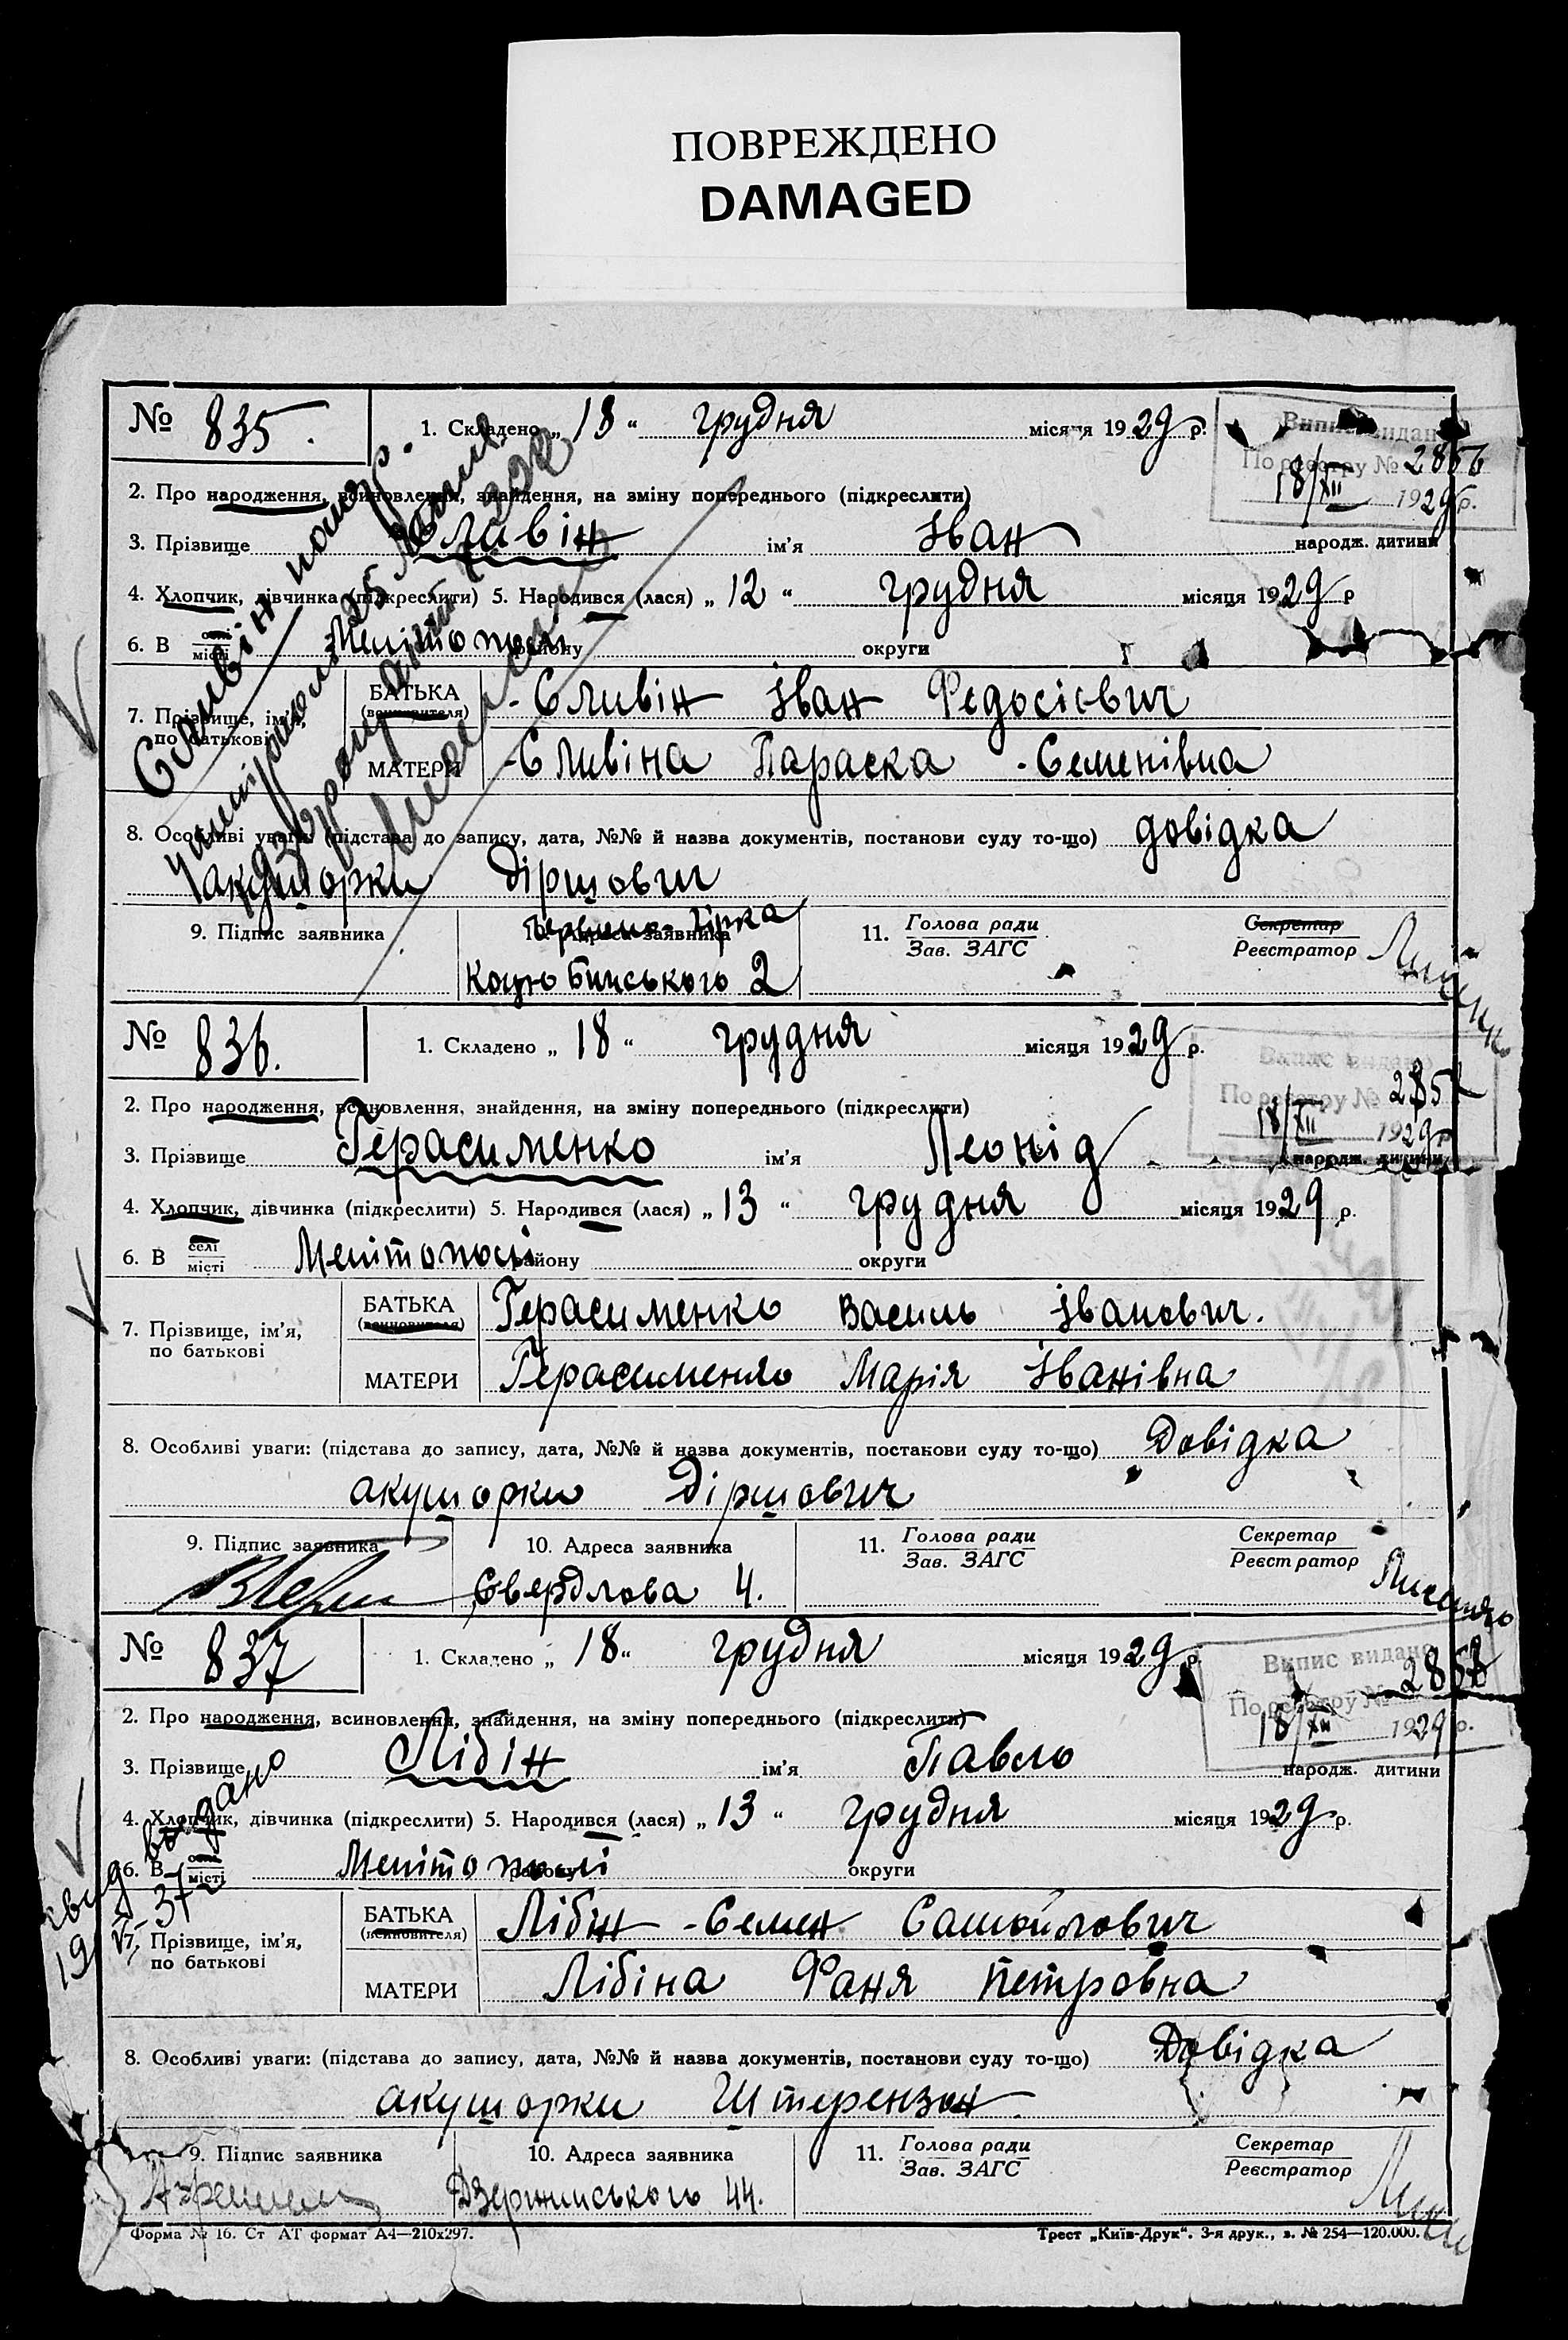 ПОВРЕЖДЕНО
DAMAGED
№ 835. 1. Складено „ 18 “ грудня місяця 1929 р.
Випис видано
По реєстру № 2856
18/XII 1929 р.
2. Про народження, всиновлення, знайдення, на зміну попереднього (підкреслити)
3. Прізвище Сливін ім’я Іван народж. дитини
4. Хлопчик, дівчинка (підкреслити) 5. Народився (лася) „ 12 “ грудня місяця 1929 р
6. В селі місті Мелітополі району округи
7. Прізвище, ім’я, по батькові
БАТЬКА (всиновителя) Сливін Іван Федосієвич
МАТЕРИ Сливіна Параска Семенівна
8. Особливі уваги: (підстава до запису, дата, №№ й назва документів, постанови суду то-що) довідка
акушорки Діршович
9. Підпис заявника 10. Адреса заявника Червона Гірка 11. Голова ради Зав. ЗАГС Секретар Реєстратор
Коцюбинського 2
Сливін
№ 836. 1. Складено „ 18 “ грудня місяця 1929 р.
Випис видано
По реєстру № 2857
18/XII 1929 р
2. Про народження, всиновлення, знайдення, на зміну попереднього (підкреслити)
3. Прізвище Герасименко ім’я Леонід народж. дитини
4. Хлопчик, дівчинка (підкреслити) 5. Народився (лася) „ 13 “ грудня місяця 1929 р.
6. В селі місті Мелітополі району округи
7. Прізвище, ім’я, по батькові
БАТЬКА (всиновителя) Герасименко Василь Іванович.
МАТЕРИ Герасименко Марія Іванівна
8. Особливі уваги: (підстава до запису, дата, №№ й назва документів, постанови суду то-що) Довідка
акушорки Діршович
9. Підпис заявника 10. Адреса заявника 11. Голова ради Зав. ЗАГС Секретар Реєстратор
Свердлова 4.
№ 837 1. Складено „ 18 “ грудня місяця 1929 р.
Випис видано
По реєстру № 2858
18/XII 1929 р.
2. Про народження, всиновлення, знайдення, на зміну попереднього (підкреслити)
3. Прізвище Лібін ім’я Павло народж. дитини
4. Хлопчик, дівчинка (підкреслити) 5. Народився (лася) „ 13 “ грудня місяця 1929 р.
6. В селі місті Мелітополі району округи
видано
7. Прізвище, ім’я, по батькові
БАТЬКА (всиновителя) Лібін Семен Самойлович
МАТЕРИ Лібіна Фаня Петровна
8. Особливі уваги: (підстава до запису, дата, №№ й назва документів, постанови суду то-що) Довідка
акушорки Штерензон
9. Підпис заявника 10. Адреса заявника 11. Голова ради Зав. ЗАГС Секретар Реєстратор
Дзержинського 44.
Форма № 16. Ст АТ формат А4—210х297. Трест „Київ-Друк“. 3-я друк., з. № 254—120.000.